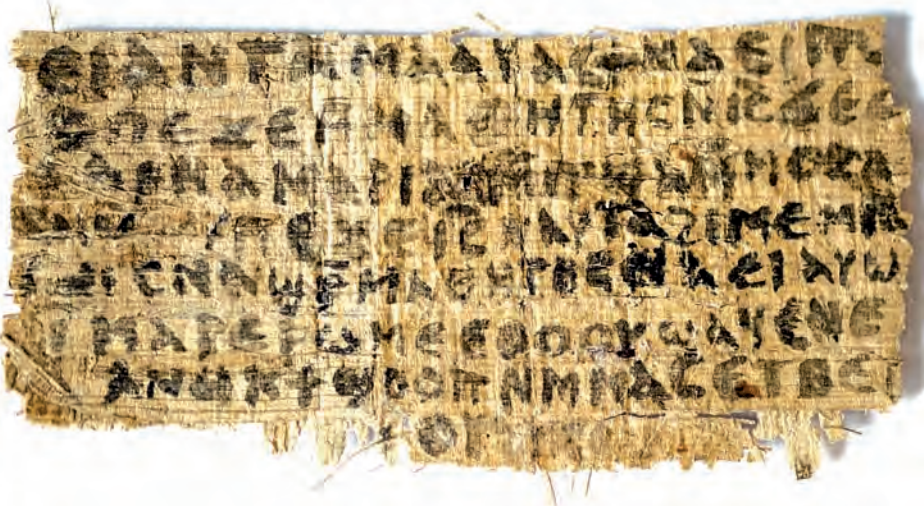 ⲉⲓ ⲁⲛ ⲧⲁⲙⲁⲁⲩ ⲁⲥϯ ⲛⲁⲉⲓ ⲡⲱ
ⲡⲉϫⲉ ⲙⲙⲁⲑⲏⲧⲏⲥ ⲛⲓⲥ ϫⲉ ⲥ
ⲁⲣⲛⲁ ⲙⲁⲣⲓⲁⲙ ⲙⲡϣⲁ ⲙⲙⲟⲥ ⲁ
ⲡⲉϫⲉ ⲓⲥ ⲛⲁⲩ ⲧⲁϩⲓⲙⲉ ⲙⲛ
ⲥⲛⲁϣⲣⲙⲁⲑⲏⲧⲏⲥ ⲛⲁⲉⲓ ⲁⲩⲱ
ⲓ ⲙⲁⲣⲉⲣⲱⲙⲉ ⲉⲑⲟⲟⲩ ϣⲁϥⲉⲛⲉ
ⲁⲛⲟⲕ ϯϣⲟⲟⲡ ⲛⲙⲙⲁⲥ ⲉⲧⲃⲉ ⲡ